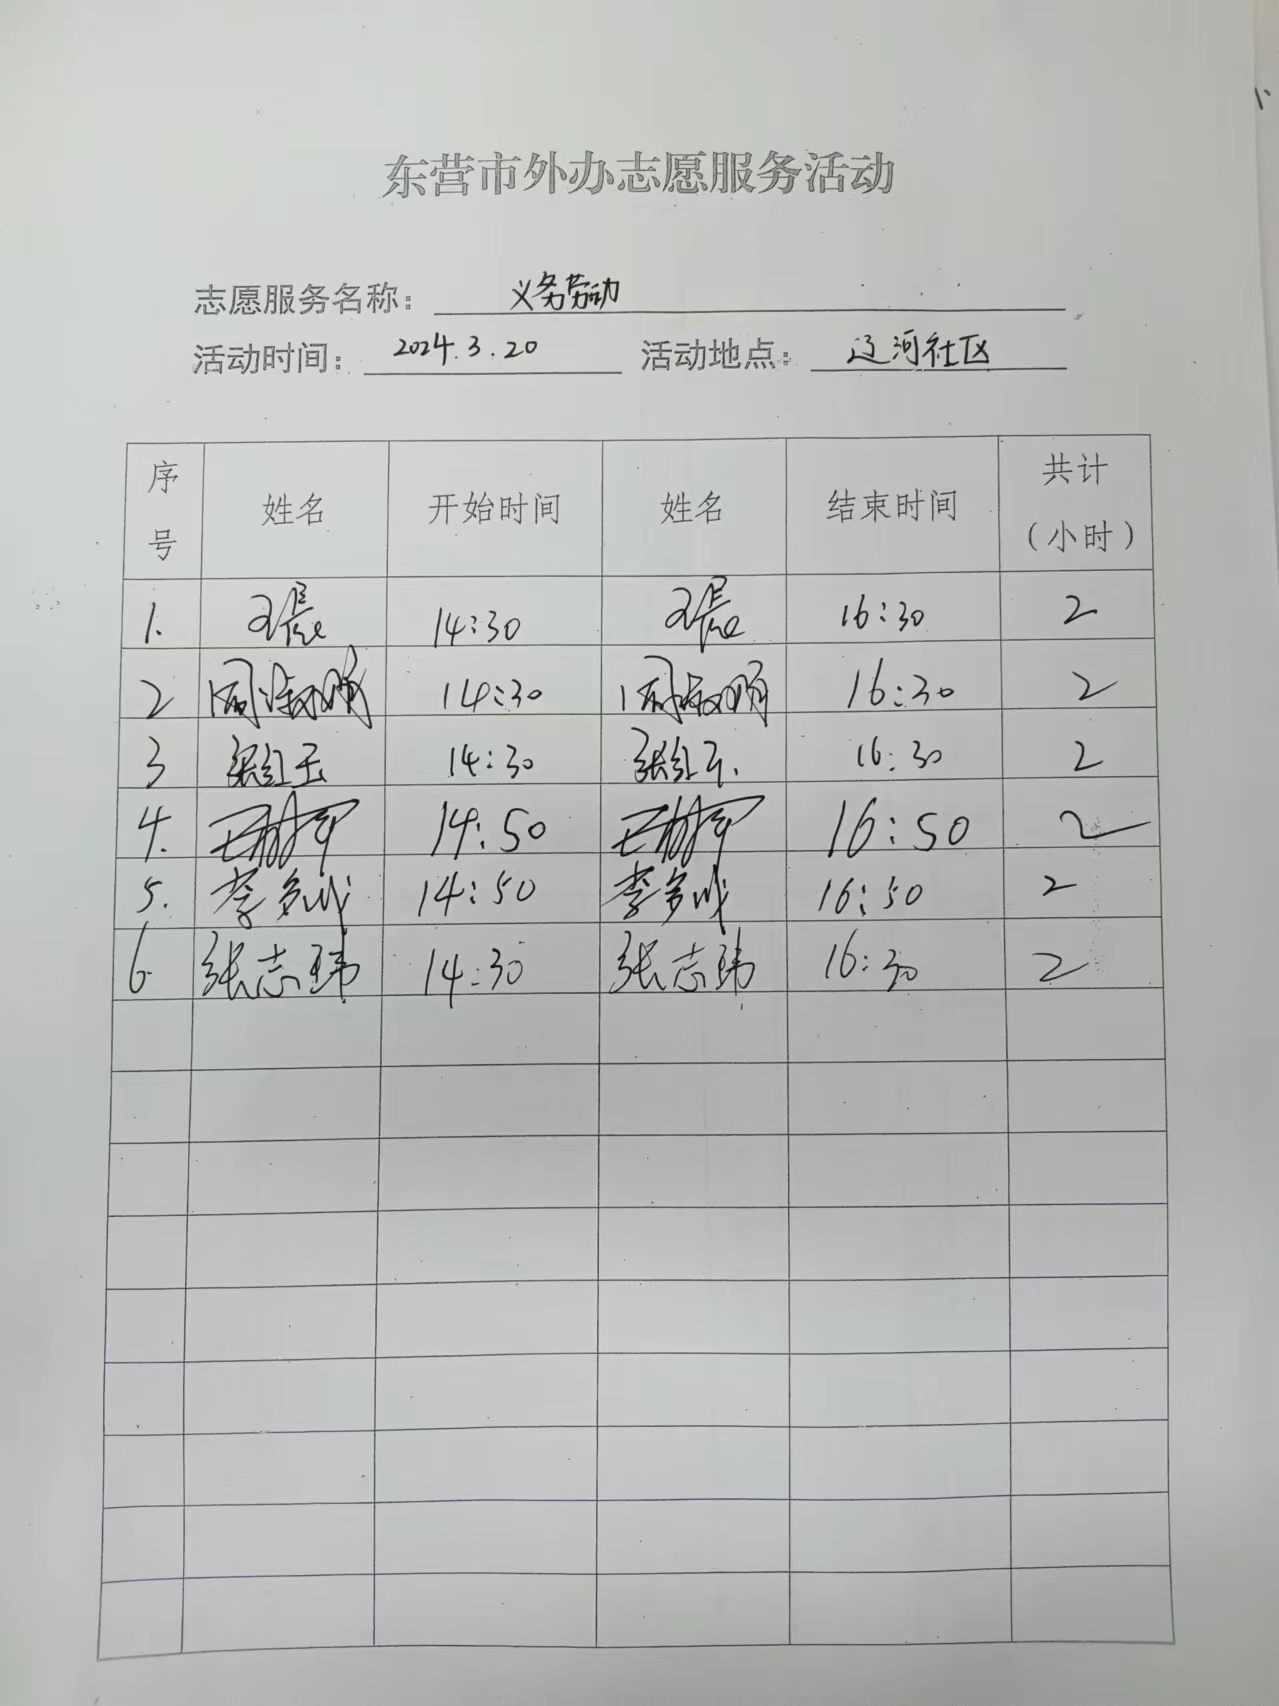 东营市外办志愿服务活动
志愿服务名称： 义务劳动
活动时间： 2024.3.20 活动地点： 辽河社区
序号 姓名 开始时间 姓名 结束时间 共计（小时）
1. 14:30 16:30 2
2 14:30 16:30 2
3 张红玉 14:30 张红玉 16:30 2
4. 14:50 16:50 2
5. 14:50 16:50 2
6. 张志玮 14:30 张志玮 16:30 2